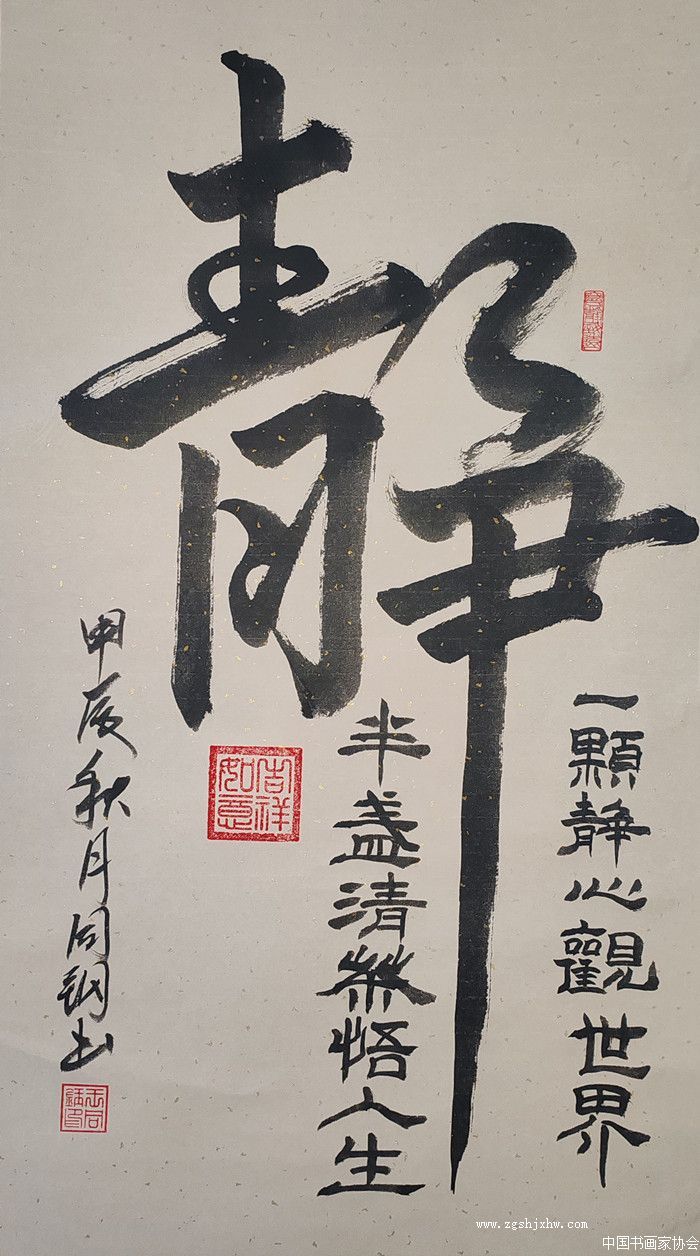 靜
一顆靜心觀世界
半盞清茶悟人生
甲辰秋月同鋼书
吉祥如意
www.zgshjxhw.com
中国书画家协会